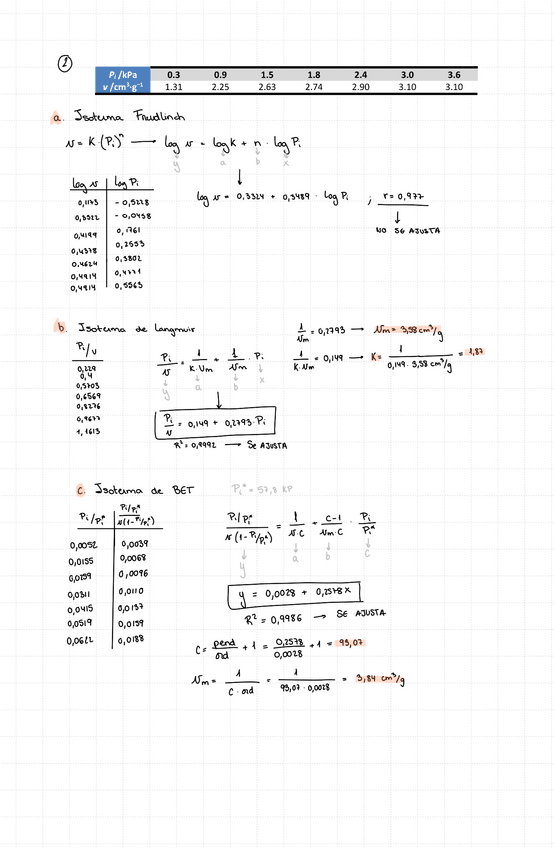 1
Pi /kPa 0.3 0.9 1.5 1.8 2.4 3.0 3.6
v /cm³·g⁻¹ 1.31 2.25 2.63 2.74 2.90 3.10 3.10
a. Isoterma Freudlinch
v = K·(Pi)ⁿ → log v = log K + n · log Pi
y a b x
log v log Pi
0,1173 - 0,5228
0,3522 - 0,0458
0,4199 0,1761
0,4378 0,2553
0,4624 0,3802
0,4914 0,4771
0,4914 0,5563
log v = 0,3324 + 0,3489 · log Pi ; r = 0,977
NO SE AJUSTA
b. Isoterma de Langmuir
Pi/v
0,229
0,4
0,5703
0,6569
0,8276
0,9677
1,1613
Pi/v = 1/K·Vm + 1/Vm · Pi
y a b x
Pi/v = 0,149 + 0,2793·Pi
R² = 0,9992 → SE AJUSTA
1/Vm = 0,2793 → Vm = 3,58 cm³/g
1/K·Vm = 0,149 → K = 1/0,149·3,58 cm³/g = 1,87
c. Isoterma de BET Pi* = 57,8 KP
Pi/Pi* Pi/Pi*/v(1-Pi/Pi*)
0,0052 0,0039
0,0155 0,0068
0,0259 0,0096
0,0311 0,0110
0,0415 0,0137
0,0519 0,0159
0,0622 0,0188
Pi/Pi*/v(1-Pi/Pi*) = 1/v·C + C-1/Vm·C · Pi/Pi*
y a b C
y = 0,0028 + 0,2578 x
R² = 0,9986 → SE AJUSTA
C = pend/ord + 1 = 0,2578/0,0028 + 1 = 93,07
Vm = 1/C·ord = 1/93,07·0,0028 = 3,84 cm³/g